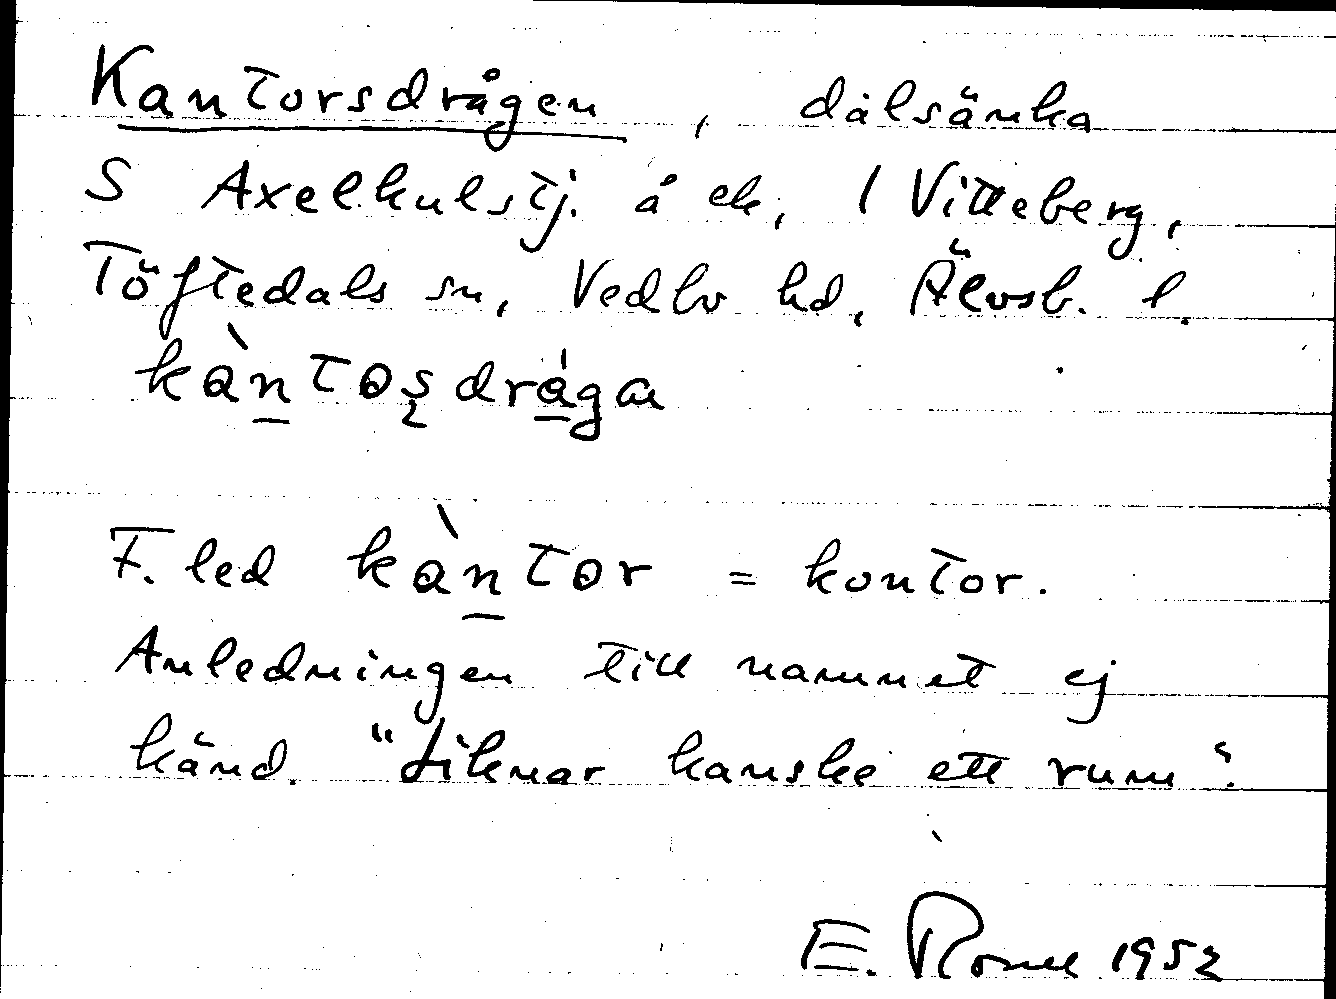 Kantorsdrågen, dålsänka
S Axelkulstj. å ek, 1 Vitteberg,
Töftedals sn, Vedbo hd, Älvsb. l.
kàntosdrága
F. led kàntor = kontor.
Anledningen till namnet ej
känd. "Liknar kanske ett rum".
E. 1952